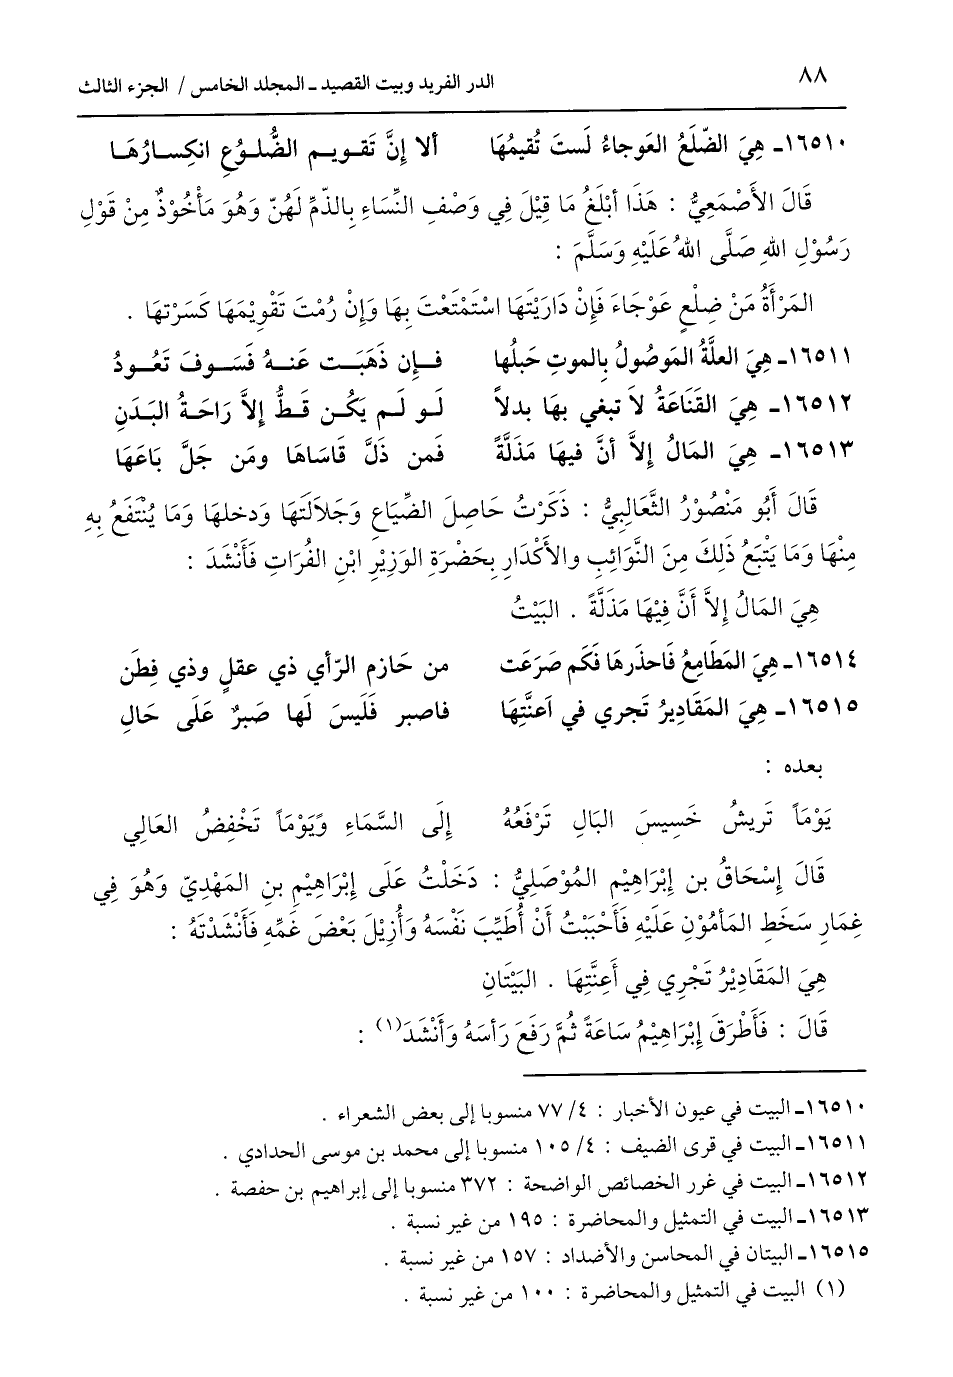 ٨٨
الدر الفريد وبيت القصيد ـ المجلد الخامس / الجزء الثالث
١٦٥١٠ـ هِيَ الضّلَعُ العَوجاءُ لَستَ تُقيمُهَا ألا إنَّ تَقويم الضُّلُوُعِ انكِسارُهَا
قَالَ الأَصْمَعِيُّ : هَذَا أبْلَغُ مَا قِيْلَ فِي وَصْفِ النِّسَاءِ بِالذّمِّ لَهُنّ وَهُوَ مَأْخُوْذٌ مِنْ قَوْلِ
رَسُوْلِ اللهِ صَلَّى اللهُ عَلَيْهِ وَسَلَّمَ :
المَرْأَةُ مَنْ ضِلْعٍ عَوْجَاءَ فَإِنْ دَارَيْتَهَا اسْتَمْتَعْتَ بِهَا وَإِنْ رُمْتَ تَقْوِيْمَهَا كَسَرْتهَا .
١٦٥١١ـ هِيَ العلَّةُ المَوصُولُ بِالموتِ حَبلُها فَإِن ذَهَبَت عَنهُ فَسَوفَ تَعُودُ
١٦٥١٢ـ هِيَ القَنَاعَةُ لاَ تبغي بهَا بدلاً لَو لَم يَكُن قَطُّ إلاَّ رَاحَةُ البَدَنِ
١٦٥١٣ـ هِيَ المَالُ إلاَّ أنَّ فيهَا مَذَلَّةً فَمن ذَلَّ قَاسَاهَا ومَن جَلَّ بَاعَهَا
قَالَ أَبُو مَنْصُوْرُ الثَّعَالِبِيُّ : ذَكَرْتُ حَاصِلَ الضِّيَاعِ وَجَلاَلَتَهَا وَدخلهَا وَمَا يُنْتَفَعُ بِهِ
مِنْهَا وَمَا يَتْبَعُ ذَلِكَ مِنَ النَّوَائِبِ والأَكْدَارِ بِحَضْرَةِ الوَزِيْرِ ابْنِ الفُرَاتِ فَأَنْشَدَ :
هِيَ المَالُ إلاَّ أَنَّ فِيْهَا مَذَلَّةً . البَيْتُ
١٦٥١٤ـ هِيَ المَطَامِعُ فَاحذَرهَا فَكَم صَرَعَت من حَازم الرّأي ذي عقلٍ وذي فِطَن
١٦٥١٥ـ هِيَ المَقَادِيرُ تَجري في اَعنَّتِهَا فاصبر فَلَيسَ لَها صَبرٌ عَلَى حَالِ
بعده :
يَوْمَاً تَريشُ خَسِيسَ البَالِ تَرْفَعُهُ إِلَى السَّمَاءِ وَيَوْمَاً تَخْفِضُ العَالِي
قَالَ إِسْحَاقُ بن إِبْرَاهِيْم المُوْصَلِيُّ : دَخَلْتُ عَلَى إِبْرَاهِيْم بنِ المَهْدِيّ وَهُوَ فِي
غِمَارِ سَخَطِ المَأمُوْنِ عَلَيْهِ فَأَحْبَبْتُ أَنْ أُطَيِّبَ نَفْسَهُ وَأُزِيْلَ بَعْضَ غَمِّهِ فَأَنْشَدْتَهُ :
هِيَ المَقَادِيْرُ تَجْرِي فِي أَعِنَّتِهَا . البَيْتَانِ
قَالَ : فَأَطْرَقَ إِبْرَاهِيْمُ سَاعَةً ثُمَّ رَفَعَ رَأسَهُ وَأَنْشَدَ(١) :
١٦٥١٠ـ البيت في عيون الأخبار : ٤/ ٧٧ منسوبا إلى بعض الشعراء .
١٦٥١١ـ البيت في قرى الضيف : ٤/ ١٠٥ منسوبا إلى محمد بن موسى الحدادي .
١٦٥١٢ـ البيت في غرر الخصائص الواضحة : ٣٧٢ منسوبا إلى إبراهيم بن حفصة .
١٦٥١٣ـ البيت في التمثيل والمحاضرة : ١٩٥ من غير نسبة .
١٦٥١٥ـ البيتان في المحاسن والأضداد : ١٥٧ من غير نسبة .
(١) البيت في التمثيل والمحاضرة : ١٠٠ من غير نسبة .